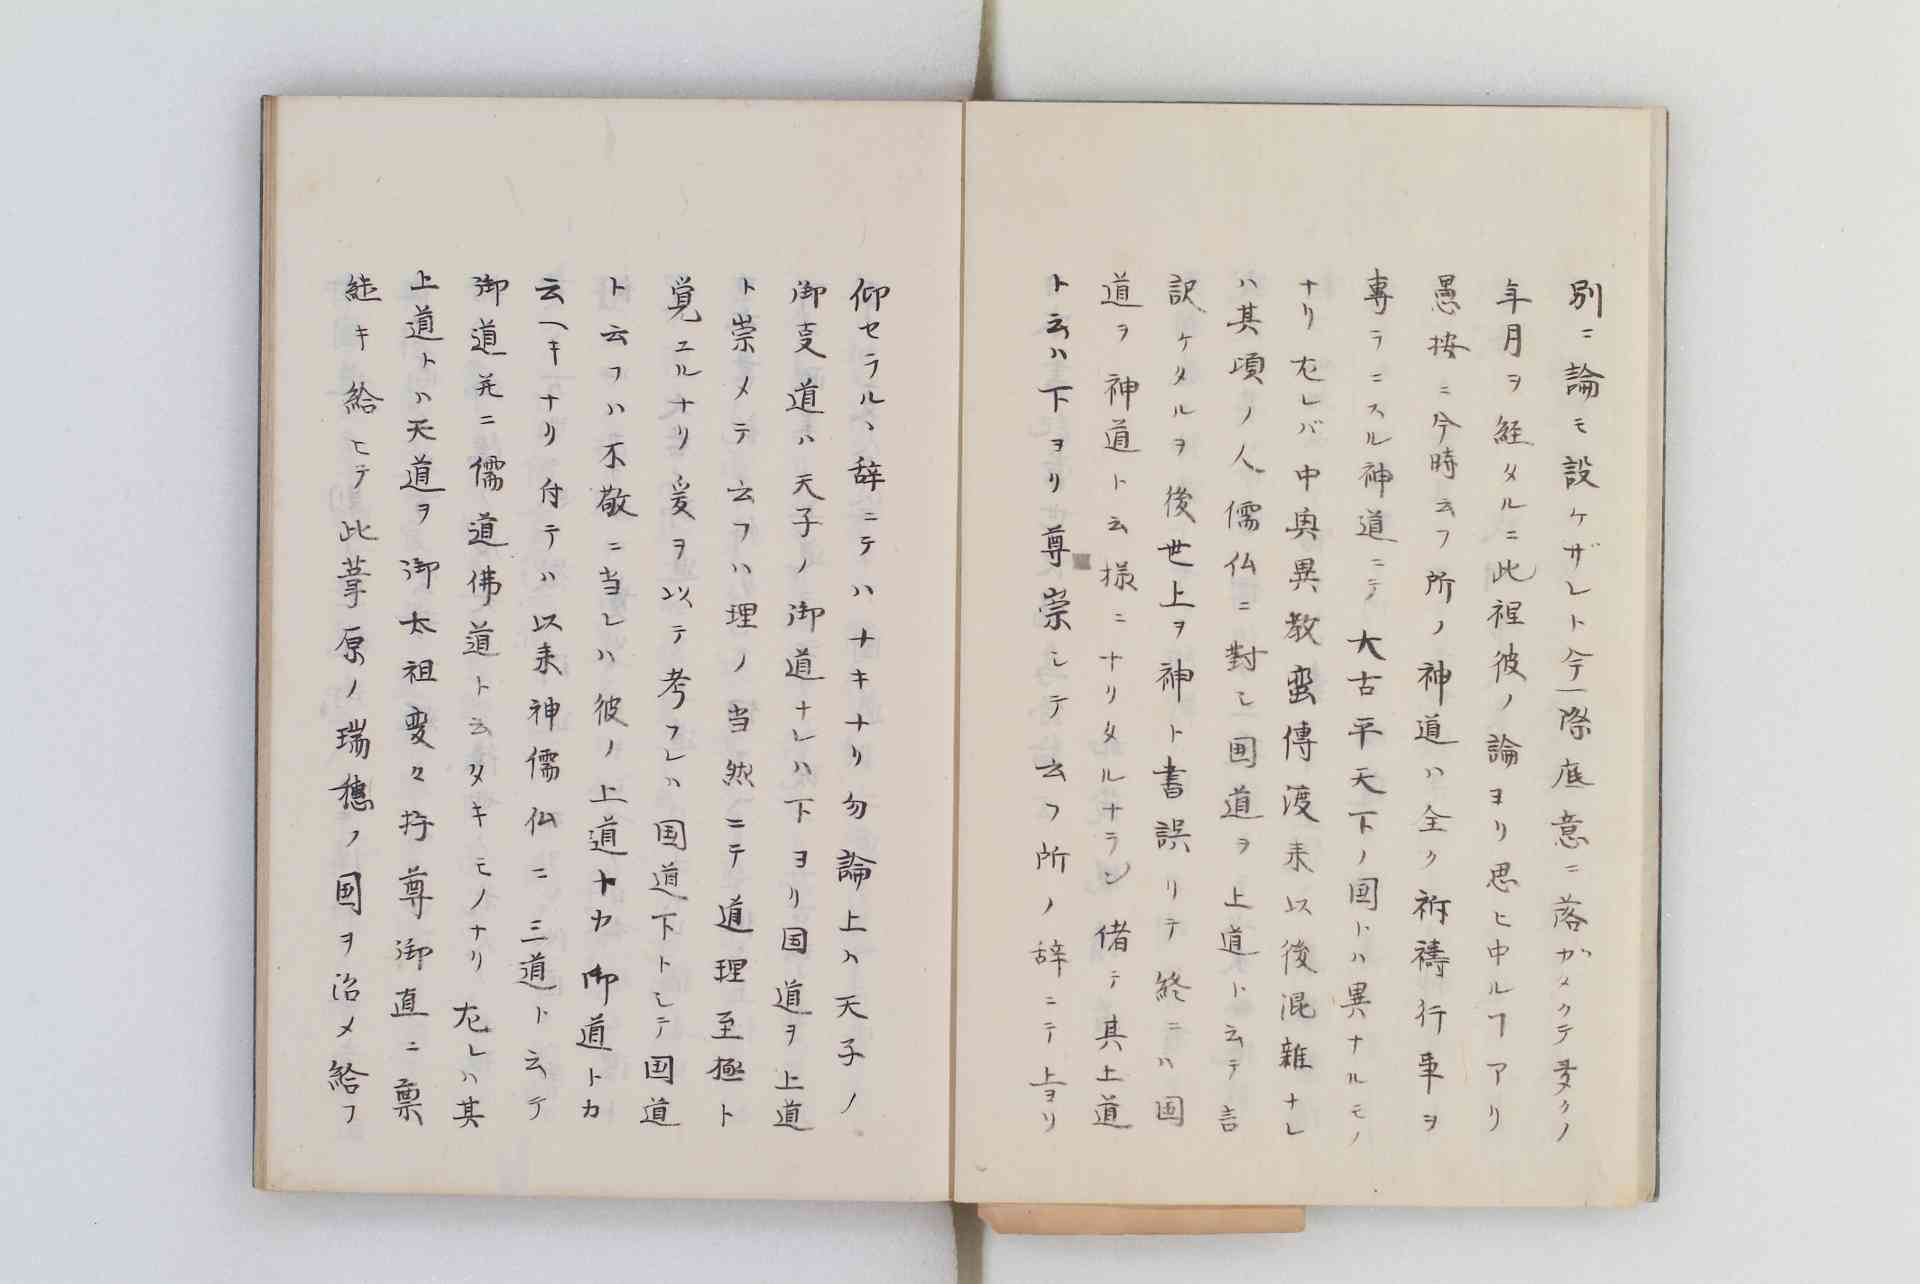 別ニ論モ設ケザレト今一際底意ニ落ガメクテ多クノ
年月ヲ経タルニ此程彼ノ論ヨリ思ヒ中ルヿアリ
愚按ニ今時云フ所ノ神道ハ全ク祈禱行事ヲ
専ラニスル神道ニテ大古平天下ノ国トハ異ナルモノ
ナリ尤レバ中奥異教蛮傳渡来以後混雑ナレ
ハ其頃ノ人儒仏ニ對シ国道ヲ上道ト云テ言
訳ケタルヲ後世上ヲ神ト書誤リテ終ニハ国
道ヲ神道ト云様ニナリタルナラン偖テ其上道
ト云ハ下ヨリ尊崇シテ云フ所ノ辞ニテ上ヨリ
仰セラルヽ辞ニテハナキナリ勿論上ハ天子ノ
御叓道ハ天子ノ御道ナレハ下ヨリ国道ヲ上道
ト崇メテ云フハ理ノ当然ニテ道理至極ト
覚エルナリ爰ヲ以テ考フレハ国道下トシテ国道
ト云フハ不敬ニ当レハ彼ノ上道トカ御道トカ
云ヘキナリ付テハ以来神儒仏ニ三道ト云テ
御道并ニ儒道佛道ト云タキモノナリ尤レハ其
上道トハ天道ヲ御太祖変々持尊御直ニ禀
継キ給ヒテ此葦原ノ瑞穂ノ国ヲ治メ給フ